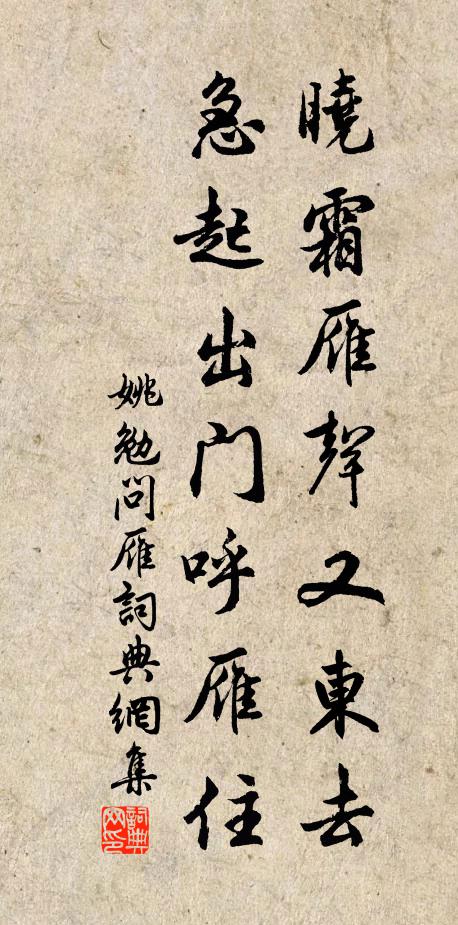 曉霜雁聲又東去
急起出門呼雁住
姚勉問雁詞典網集
詞典網印